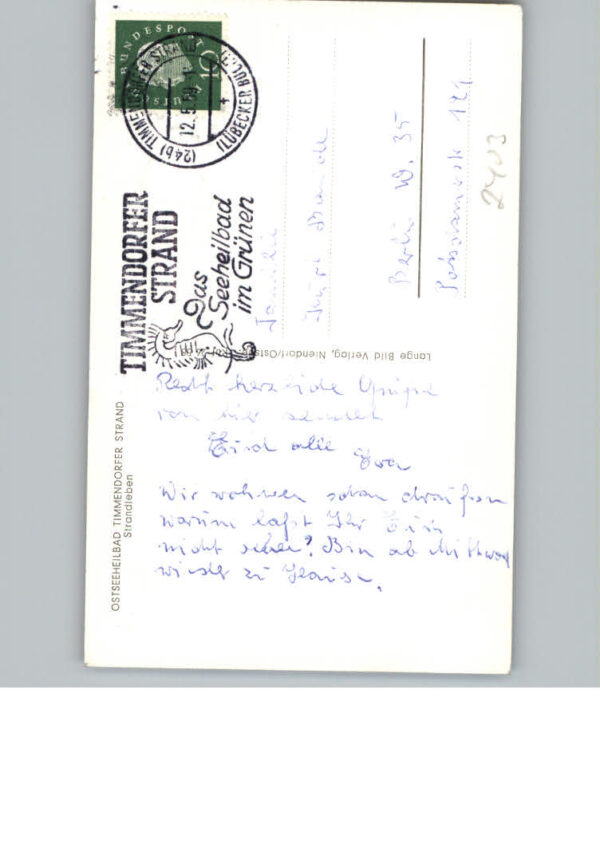 BUNDESPOST
10
(24b) TIMMENDORFER STRAND
12.5.59
(LÜBECKER BUCHT)
TIMMENDORFER
STRAND
Das
Seeheilbad
im Grünen
Familie
Berlin W. 35
Potsdamerstr 121
2403
Lange Bild Verlag, Niendorf/Ostsee
OSTSEEHEILBAD TIMMENDORFER STRAND
Strandleben
Recht herzliche Grüße
von hier sendet
Euch alle
Wir wohnen schon draußen
warum laßt Ihr Euch
nicht sehen? Bin ab Mittwoch
wieder zu Hause.